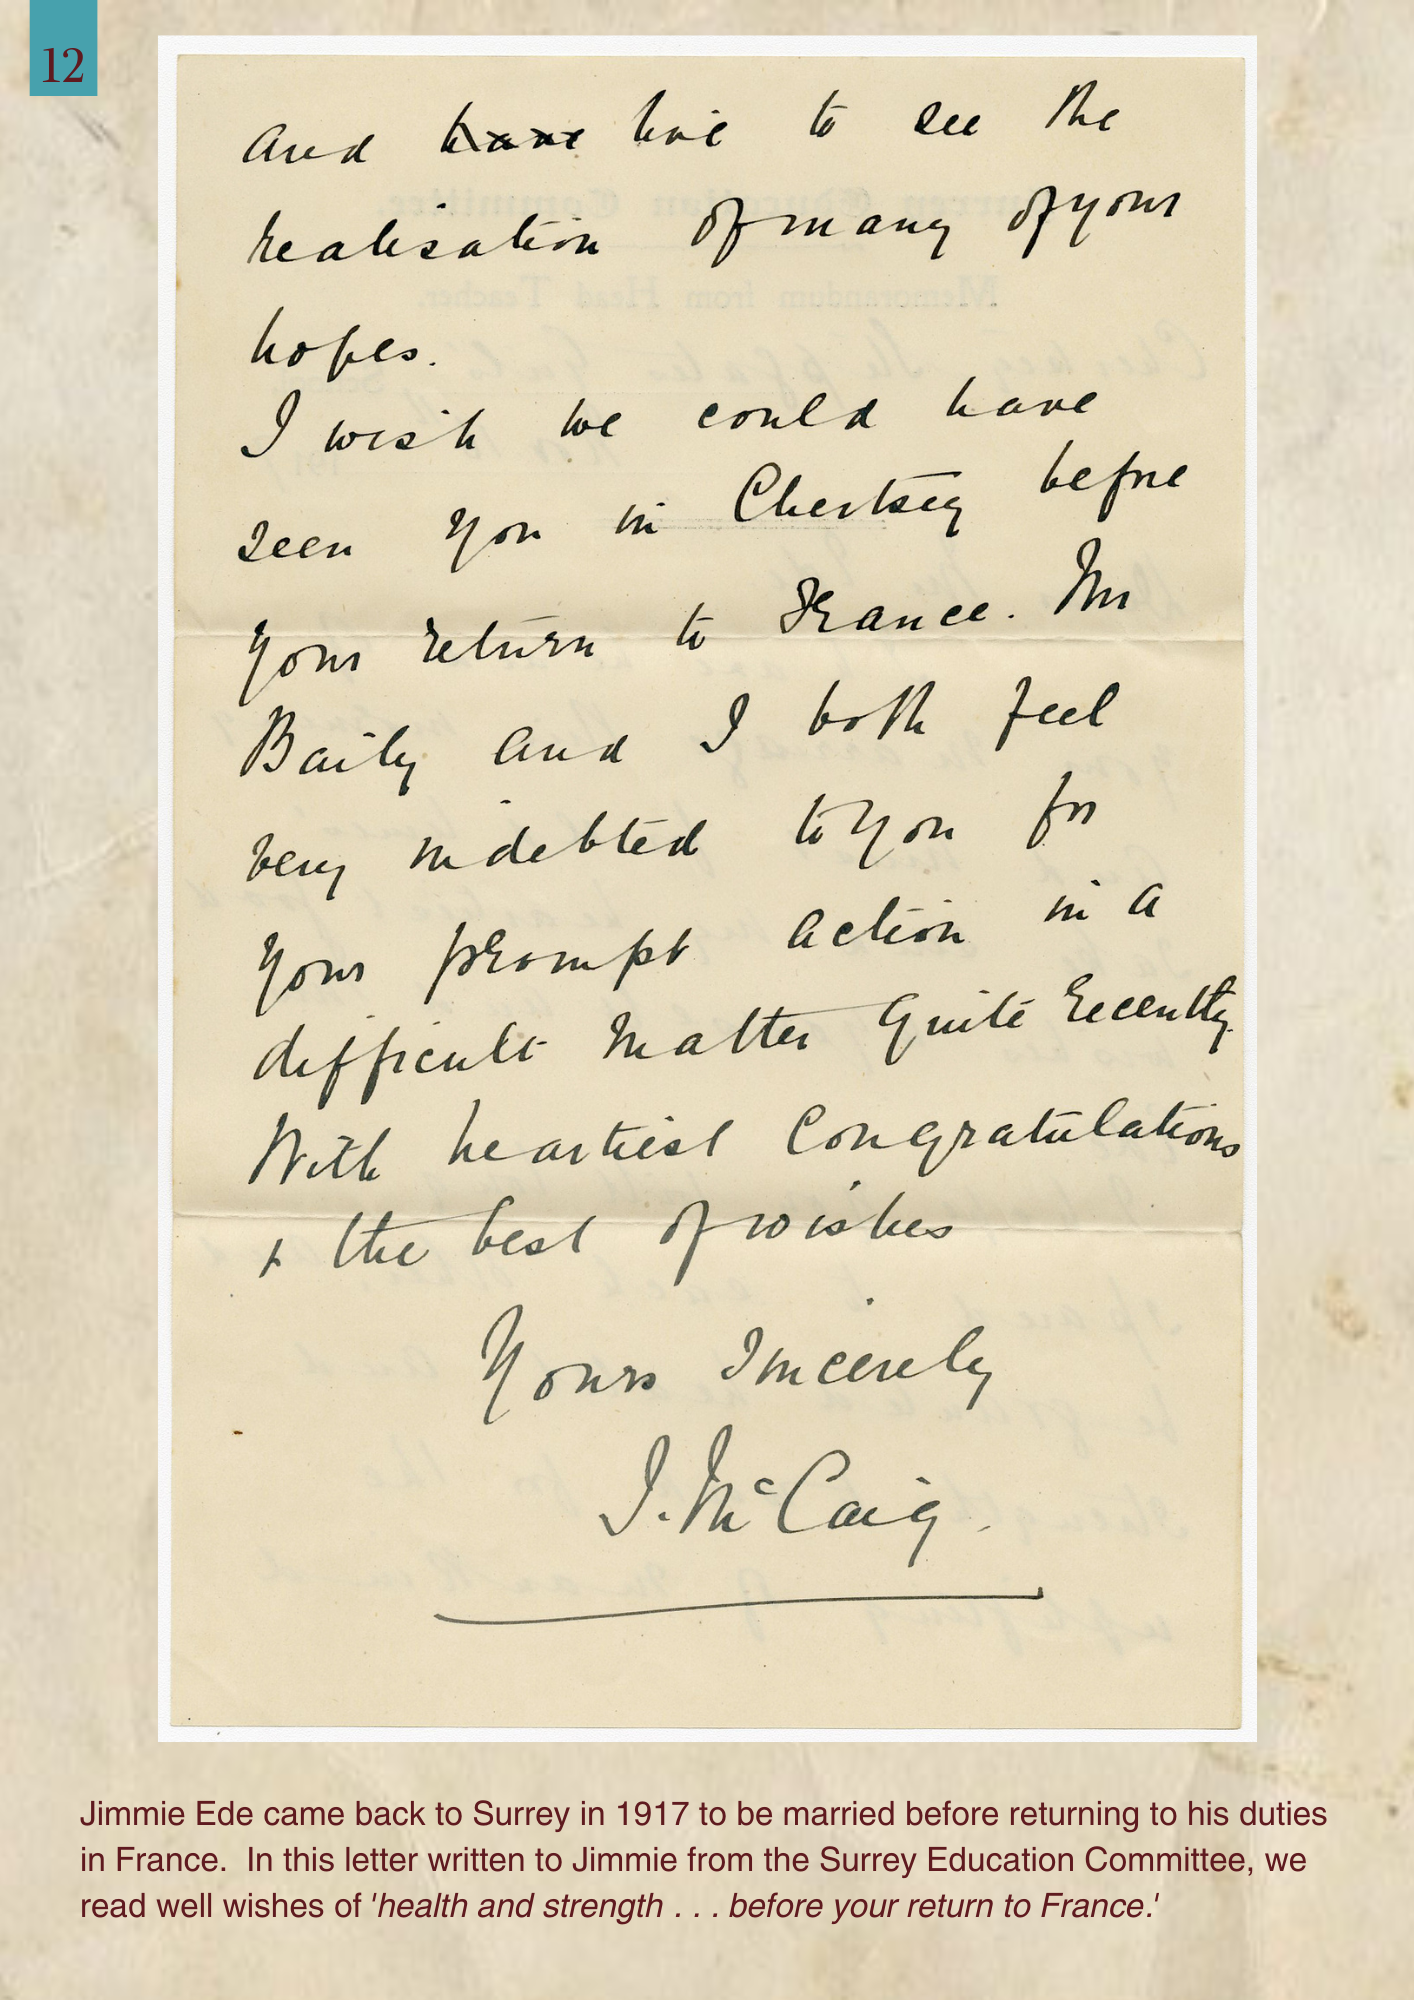 12
and have live to see the
realisation of many of your
hopes.
I wish we could have
seen you in Chertsey before
your return to France. Mr
Baily and I both feel
very indebted to you for
your prompt action in a
difficult matter quite recently.
With heartiest Congratulations
+ the best of wishes
Yours Sincerely
J. McCaig.
Surrey Education Committee.
Memorandum from Head Teacher.
Jimmie Ede came back to Surrey in 1917 to be married before returning to his duties
in France.  In this letter written to Jimmie from the Surrey Education Committee, we
read well wishes of 'health and strength . . . before your return to France.'